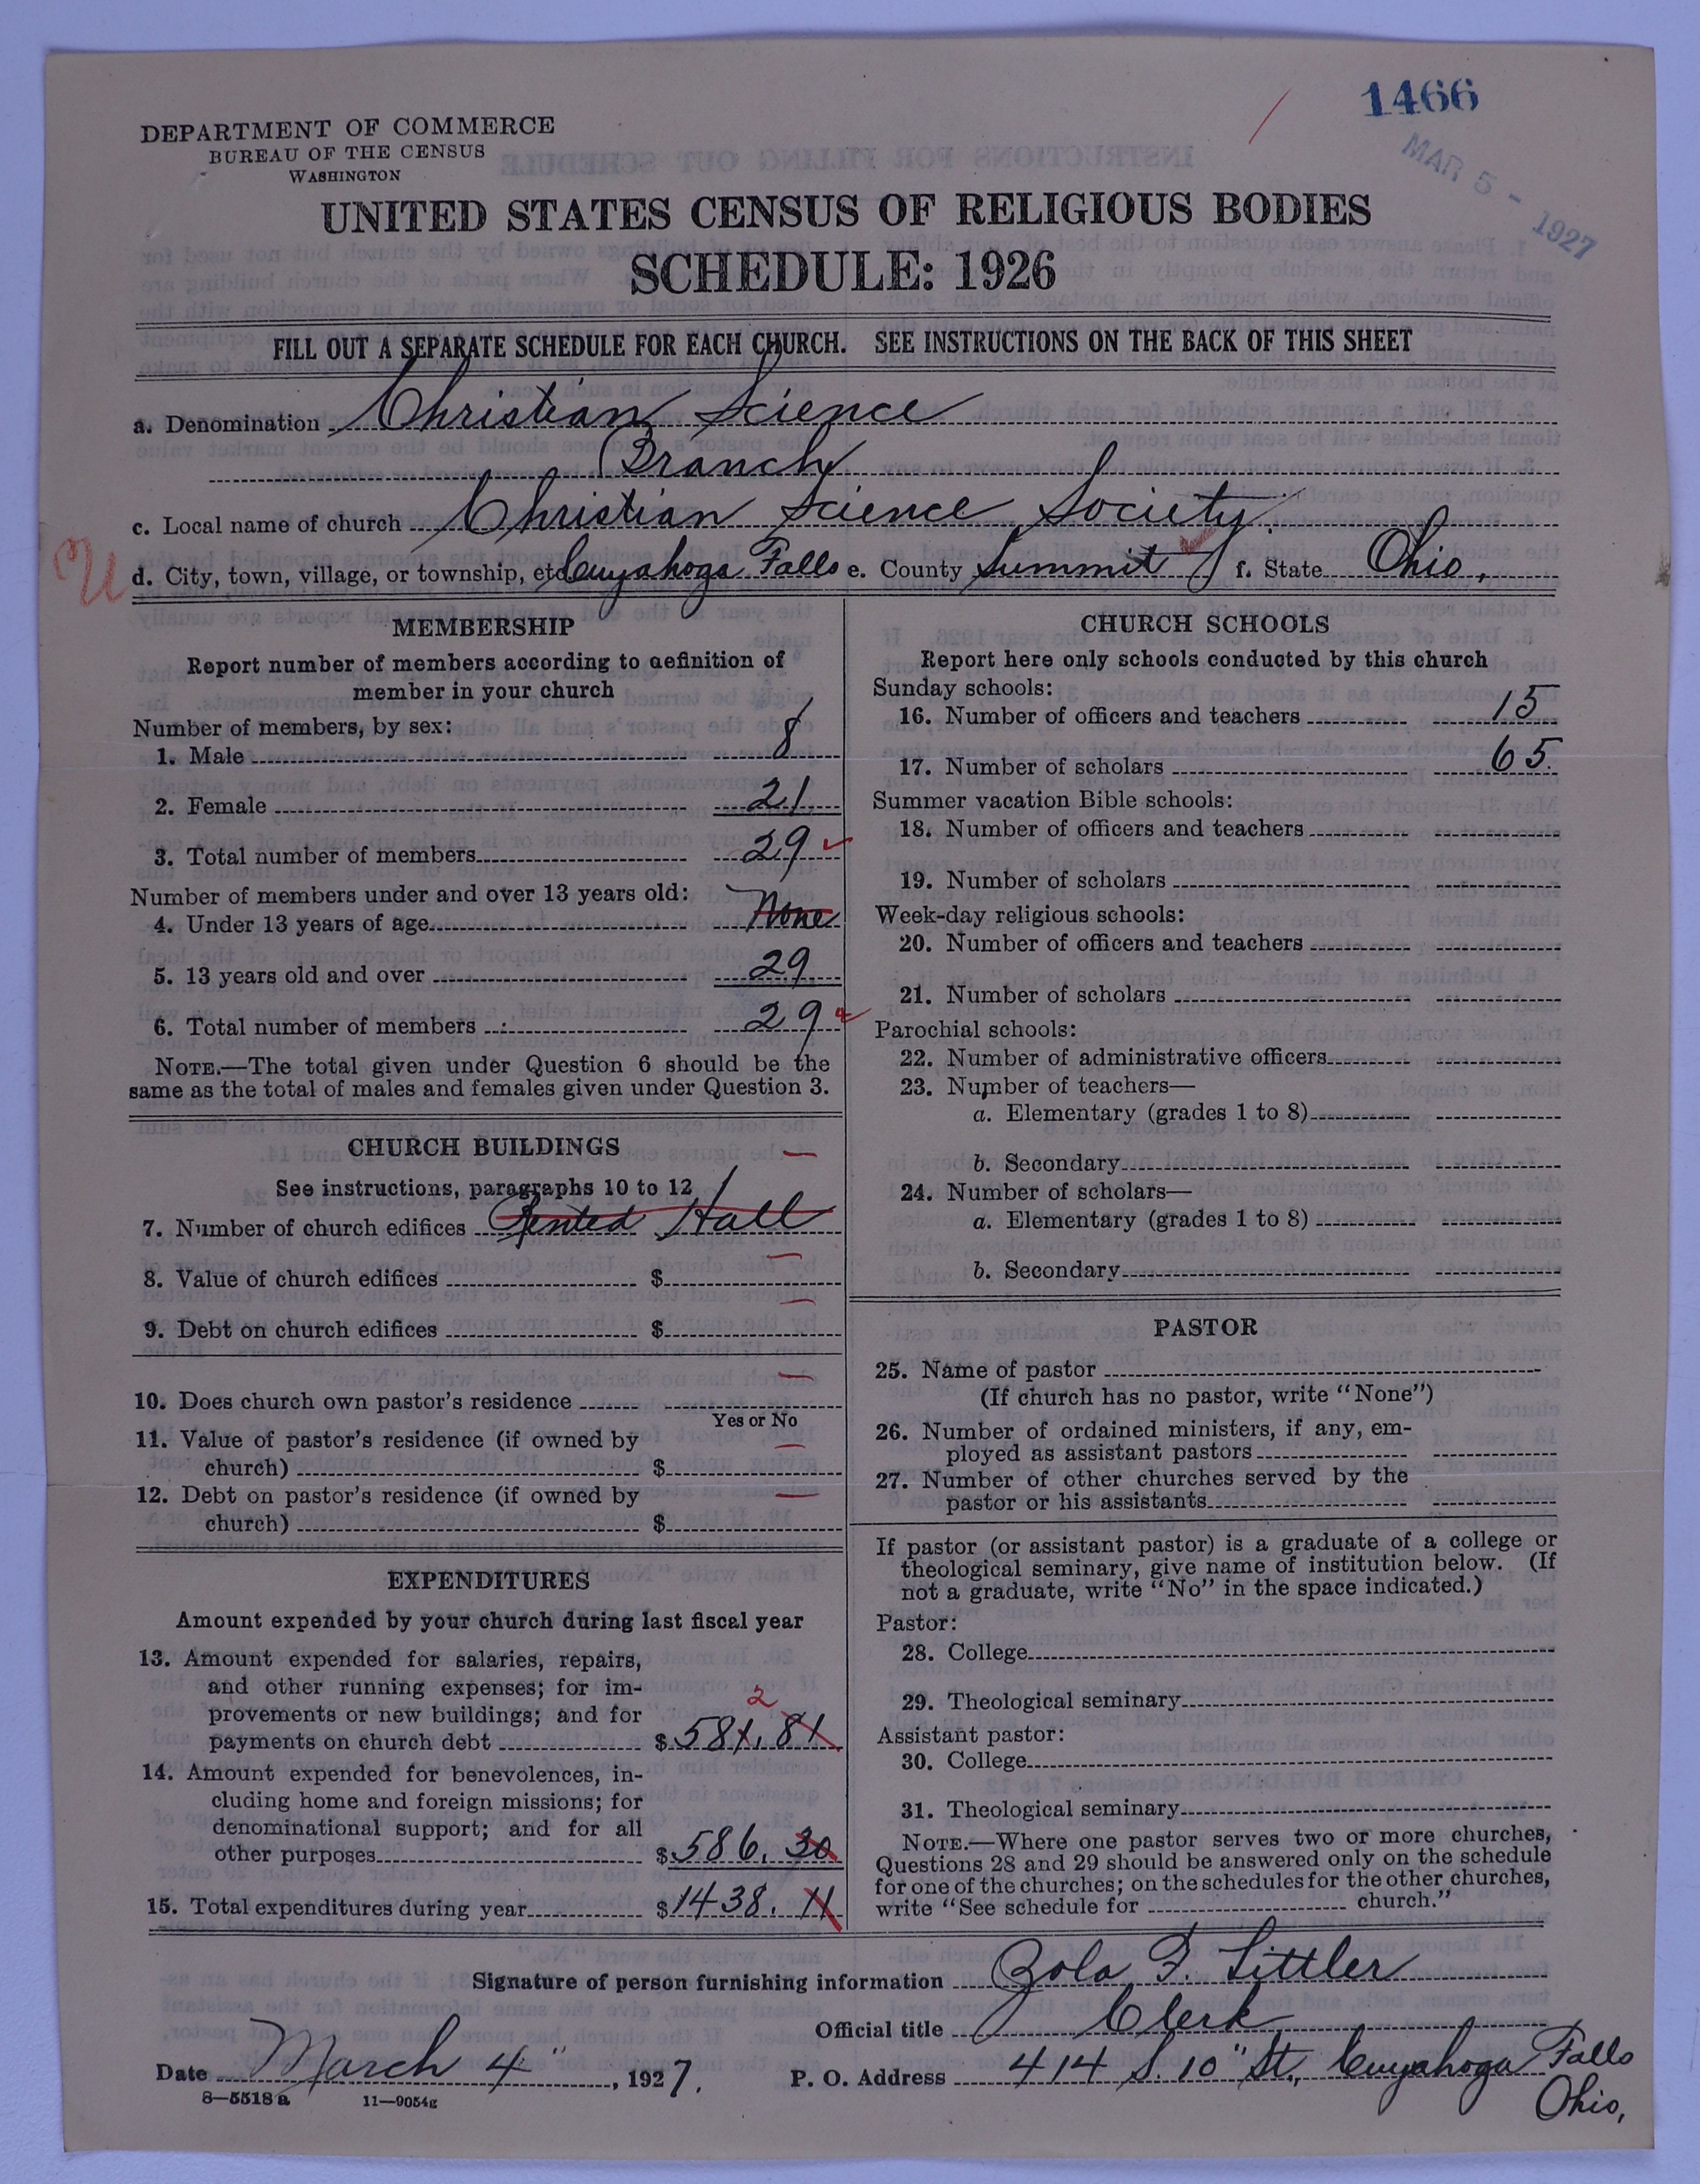 1466
MAR 5 - 1927
DEPARTMENT OF COMMERCE
BUREAU OF THE CENSUS
WASHINGTON
UNITED STATES CENSUS OF RELIGIOUS BODIES
SCHEDULE: 1926
FILL OUT A SEPARATE SCHEDULE FOR EACH CHURCH. SEE INSTRUCTIONS ON THE BACK OF THIS SHEET
a. Denomination Christian Science
Branch
c. Local name of church Christian Science Society.
d. City, town, village, or township, etc. Cuyahoga Falls e. County Summit f. State Ohio.
MEMBERSHIP
Report number of members according to definition of
member in your church
Number of members, by sex:
1. Male 8
2. Female 21
3. Total number of members 29
Number of members under and over 13 years old:
4. Under 13 years of age None
5. 13 years old and over 29
6. Total number of members 29
NOTE.—The total given under Question 6 should be the
same as the total of males and females given under Question 3.
CHURCH BUILDINGS
See instructions, paragraphs 10 to 12
7. Number of church edifices Rented Hall
8. Value of church edifices $
9. Debt on church edifices $
10. Does church own pastor's residence
Yes or No
11. Value of pastor's residence (if owned by
church) $
12. Debt on pastor's residence (if owned by
church) $
EXPENDITURES
Amount expended by your church during last fiscal year
13. Amount expended for salaries, repairs,
and other running expenses; for im-
provements or new buildings; and for
2
payments on church debt $ 581.81
14. Amount expended for benevolences, in-
cluding home and foreign missions; for
denominational support; and for all
other purposes $ 586.30
15. Total expenditures during year $ 1438.11
CHURCH SCHOOLS
Report here only schools conducted by this church
Sunday schools:
16. Number of officers and teachers 15
17. Number of scholars 65.
Summer vacation Bible schools:
18. Number of officers and teachers
19. Number of scholars
Week-day religious schools:
20. Number of officers and teachers
21. Number of scholars
Parochial schools:
22. Number of administrative officers
23. Number of teachers—
a. Elementary (grades 1 to 8)
b. Secondary
24. Number of scholars—
a. Elementary (grades 1 to 8)
b. Secondary
PASTOR
25. Name of pastor
(If church has no pastor, write "None")
26. Number of ordained ministers, if any, em-
ployed as assistant pastors
27. Number of other churches served by the
pastor or his assistants
If pastor (or assistant pastor) is a graduate of a college or
theological seminary, give name of institution below. (If
not a graduate, write "No" in the space indicated.)
Pastor:
28. College
29. Theological seminary
Assistant pastor:
30. College
31. Theological seminary
NOTE.—Where one pastor serves two or more churches,
Questions 28 and 29 should be answered only on the schedule
for one of the churches; on the schedules for the other churches,
write "See schedule for church."
Signature of person furnishing information Zola F. Littler
Official title Clerk
Date March 4", 1927. P. O. Address 414 S. 10" St., Cuyahoga Falls
Ohio,
8—5518a 11—9054g